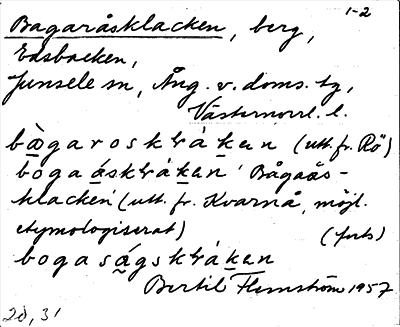 1-2
Bagaråsklacken, berg,
Edsbacken,
Junsele sn, Ång. v. doms. tg,
Västernorrl. l.
bàgaroskláken (utt. fr. Rö)
bogaáskláken 'Bågaås-
klacken' (utt. fr. Kvarnå, möjl.
etymologiserat) (forts)
bogaságskláken
Bertil Flemström 1957
2d, 31